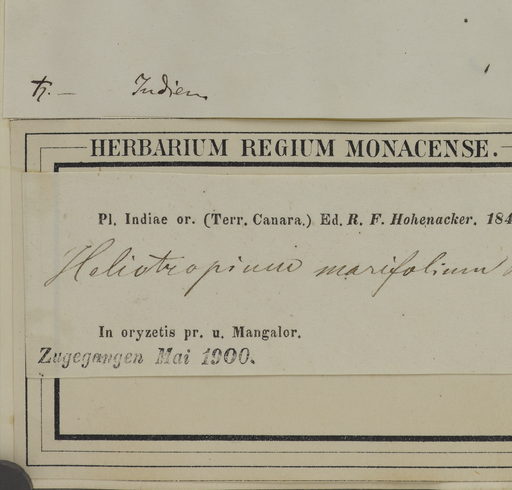 ђ. — Indien
HERBARIUM REGIUM MONACENSE.
Pl. Indiae or. (Terr. Canara.) Ed. R. F. Hohenacker. 184
Heliotropium marifolium
In oryzetis pr. u. Mangalor.
Zugegangen Mai 1900.